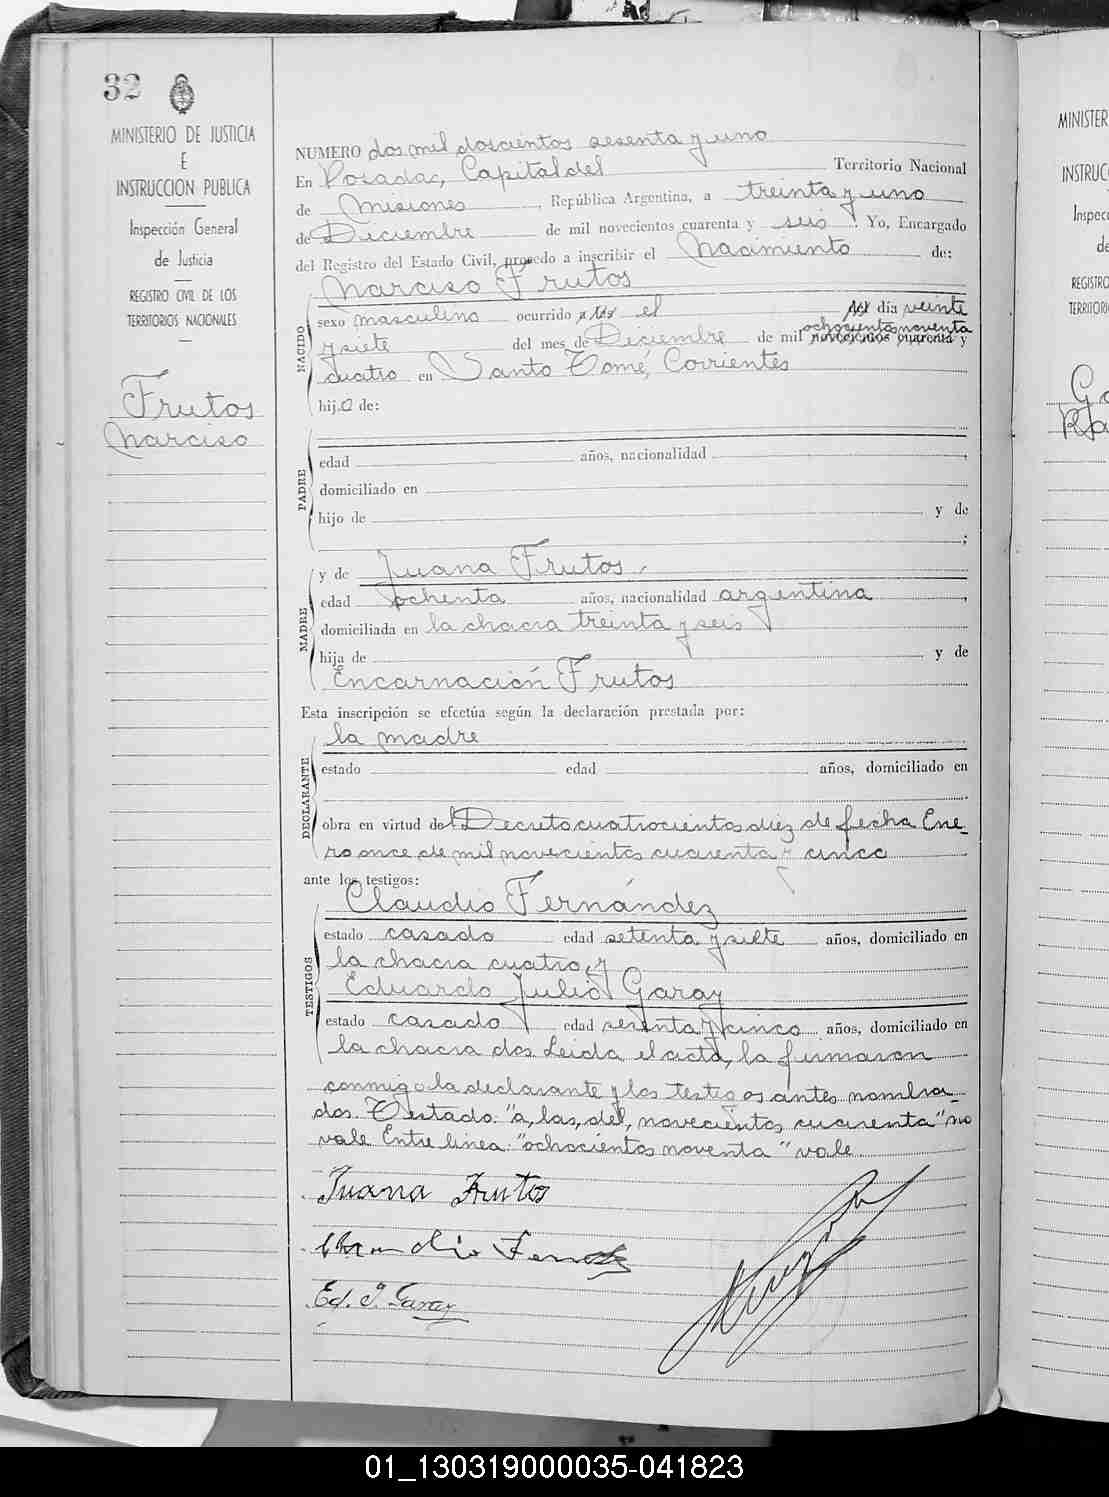 32
MINISTERIO DE JUSTICIA
E
INSTRUCCION PUBLICA
Inspección General
de Justicia
REGISTRO CIVIL DE LOS
TERRITORIOS NACIONALES
Frutos
Narciso
NUMERO dos mil doscientos sesenta y uno
En Posadas, Capital del Territorio Nacional
de Misiones, República Argentina, a treinta y uno
de Diciembre de mil novecientos cuarenta y seis. Yo, Encargado
del Registro del Estado Civil, procedo a inscribir el Nacimiento de:
NACIDO
Narciso Frutos
sexo masculino ocurrido a las el del día veinte
ochocientos noventa
y siete del mes de Diciembre de mil novecientos cuarenta y
cuatro en Santo Tomé, Corrientes
hijo de:
PADRE
edad años, nacionalidad ,
domiciliado en
hijo de y de
;
MADRE
y de Juana Frutos
edad ochenta años, nacionalidad argentina ,
domiciliada en la chacra treinta y seis
hija de y de
Encarnación Frutos
Esta inscripción se efectúa según la declaración prestada por:
DECLARANTE
la madre
estado edad años, domiciliado en
obra en virtud del Decreto cuatrocientos diez de fecha Ene-
ro once de mil novecientos cuarenta y cinco
ante los testigos:
TESTIGOS
Claudio Fernández
estado casado edad setenta y siete años, domiciliado en
la chacra cuatro, y
Eduardo Julio Garay
estado casado edad sesenta y cinco años, domiciliado en
la chacra dos. Leida el acta, la firmaron
conmigo la declarante y los testigos antes nombra-
dos. Testado: "a, las, del, novecientos cuarenta" no
vale. Entre linea: "ochocientos noventa" vale.
Juana Frutos
Ed. J. Garay
MINISTER
INSTRUC
Inspec
de
REGISTRO
TERRITORI
Ga
Ra
01_130319000035-041823